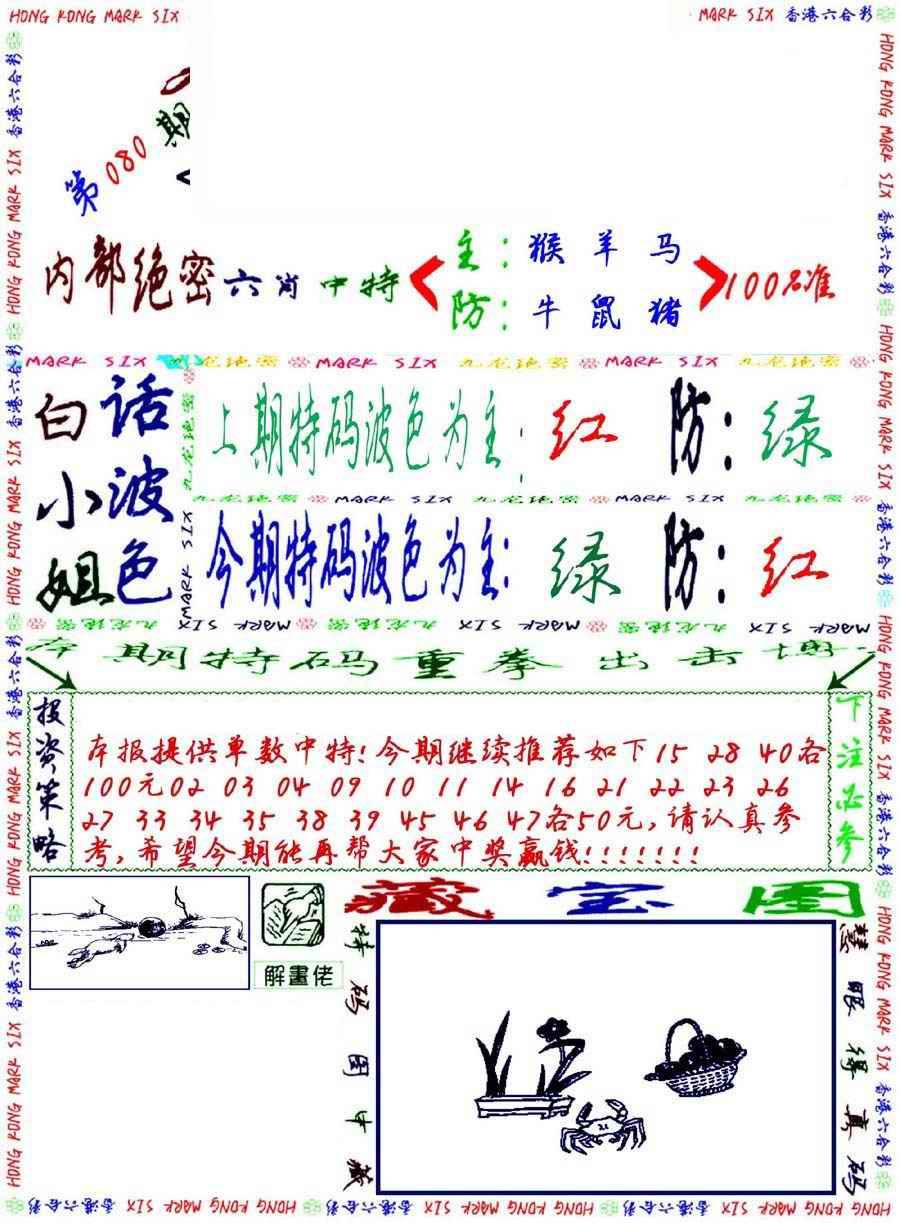 HONG KONG MARK SIX
MARK SIX 香港六合彩
第080期
内部绝密六肖中特
主:猴 羊 马
防:牛 鼠 猪
100%准
MARK SIX 九龙绝密 MARK SIX 九龙绝密 MARK SIX 九龙绝密
白话
小波
姐色
上期特码波色为主:红 防:绿
九龙绝密 MARK SIX 九龙绝密 MARK SIX 九龙绝密 MARK SIX
今期特码波色为主:绿 防:红
九龙绝密 MARK SIX 九龙绝密 MARK SIX 九龙绝密 MARK SIX
本期特码重拳出击
投资策略
本报提供单数中特!今期继续推荐如下15 28 40各
100元02 03 04 09 10 11 14 16 21 22 23 26
27 33 34 35 38 39 45 46 47各50元,请认真参
考,希望今期能再帮大家中奖赢钱!!!!!!!
下注必参
解畫佬
藏宝图
特码图中藏
慧眼得真码
HONG KONG MARK SIX 香港六合彩